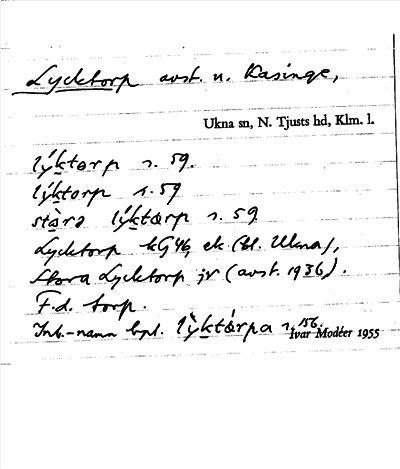 Lycktorp avst. u. Kasinge,
Ukna sn, N. Tjusts hd, Klm. l.
lýktorp s. 59.
lýktorp s. 59
stàra lýktàrp s. 59
Lycktorp kG46, ek (bl. Ukna),
Stora Lycktorp jr (avst. 1936).
F.d. torp.
Inb.-namn bpl. lỳktárpa s. 156.
Ivar Modéer 1955